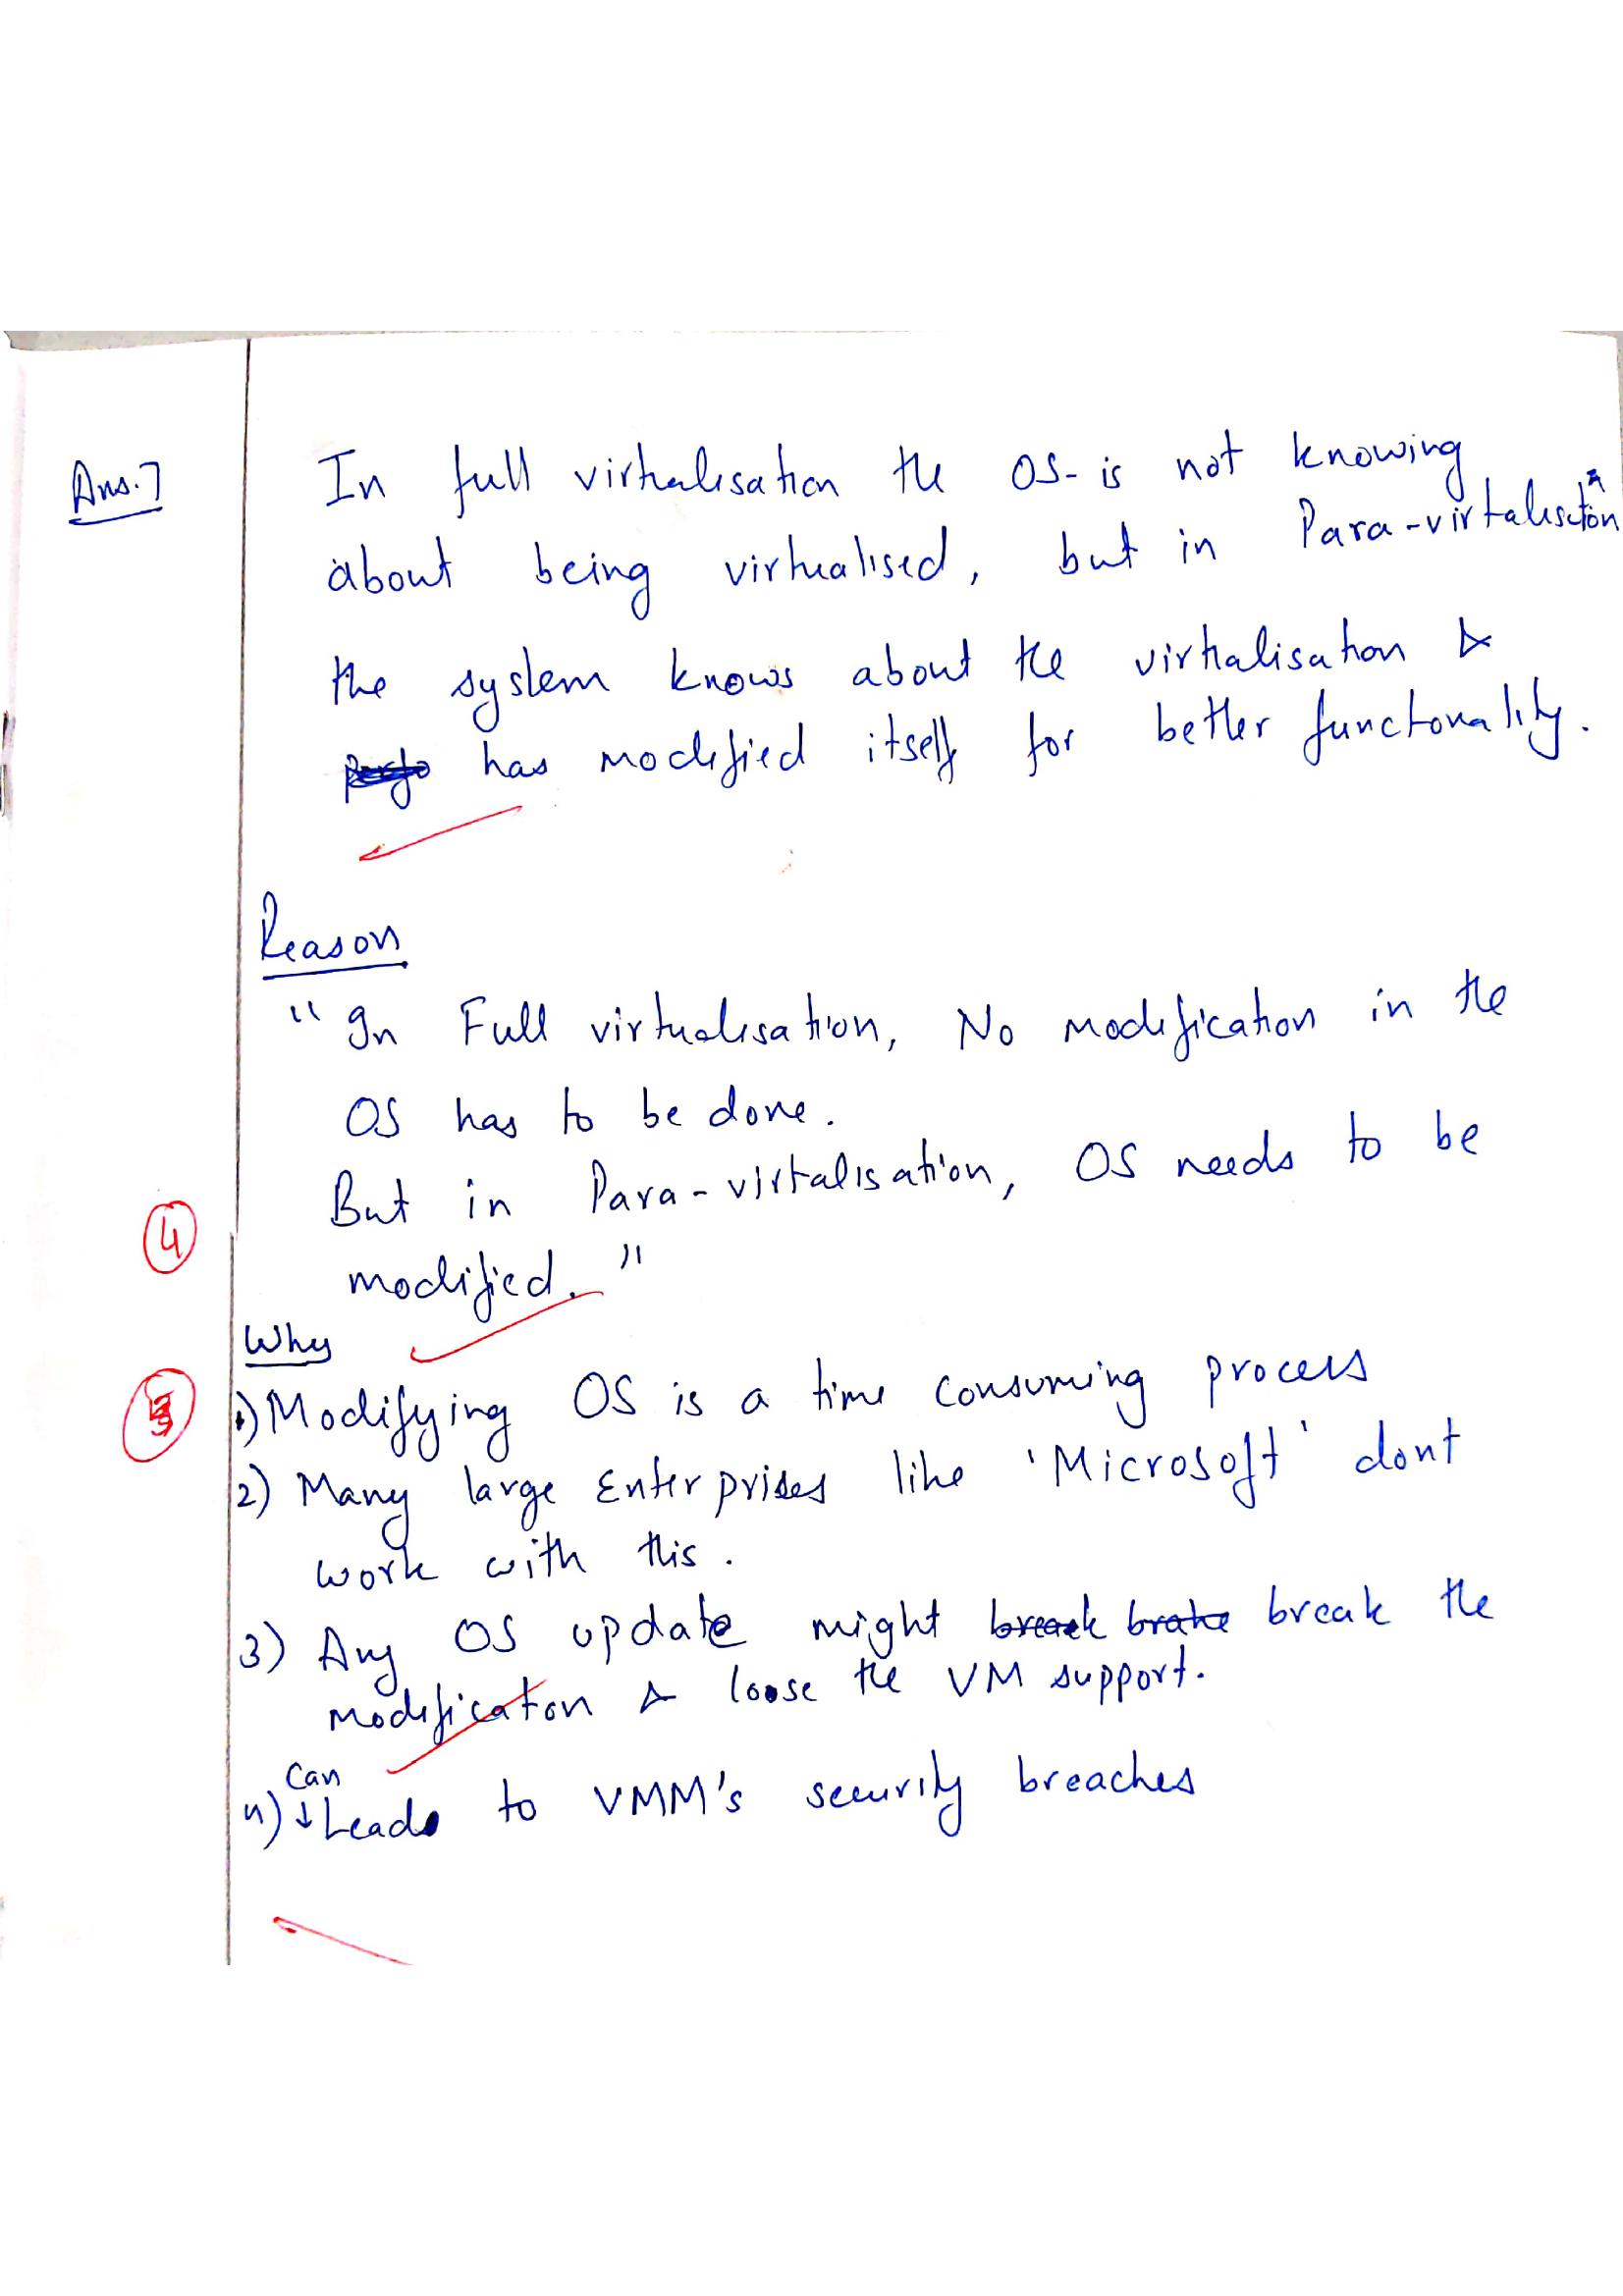 Ans.7
In full virtualisation the OS- is not knowing
about being virtualised, but in Para-virtalisation
the system knows about the virtialisation &
has modified itself for better functonality.
Reason
"In Full virtualisation, No modification in the
OS has to be done.
But in Para-virtalisation, OS needs to be
4
modified."
Why
1) Modifying OS is a time consuming process
2) Many large Enterprises like 'Microsoft' dont
work with this.
3) Any OS update might break brake break the
modificaton & loose the VM support.
Can
4) ↓ Leads to VMM's security breaches